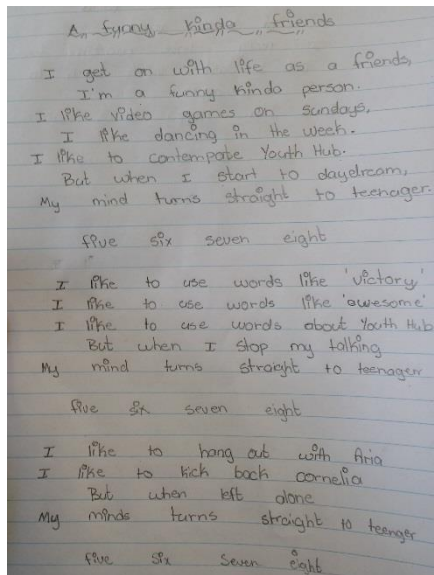 A funny kinda friends
I get on with life as a friends,
I'm a funny kinda person.
I like video games on sundays,
I like dancing in the week.
I like to contempate Youth Hub.
But when I start to daydream,
My mind turns straight to teenager.
five six seven eight
I like to use words like 'victory'
I like to use words like 'awesome'
I like to use words about Youth Hub
But when I stop my talking
My mind turns straight to teenager
five six seven eight
I like to hang out with Aria
I like to kick back cornelia
But when left alone
My minds turns straight to teenger
five six seven eight